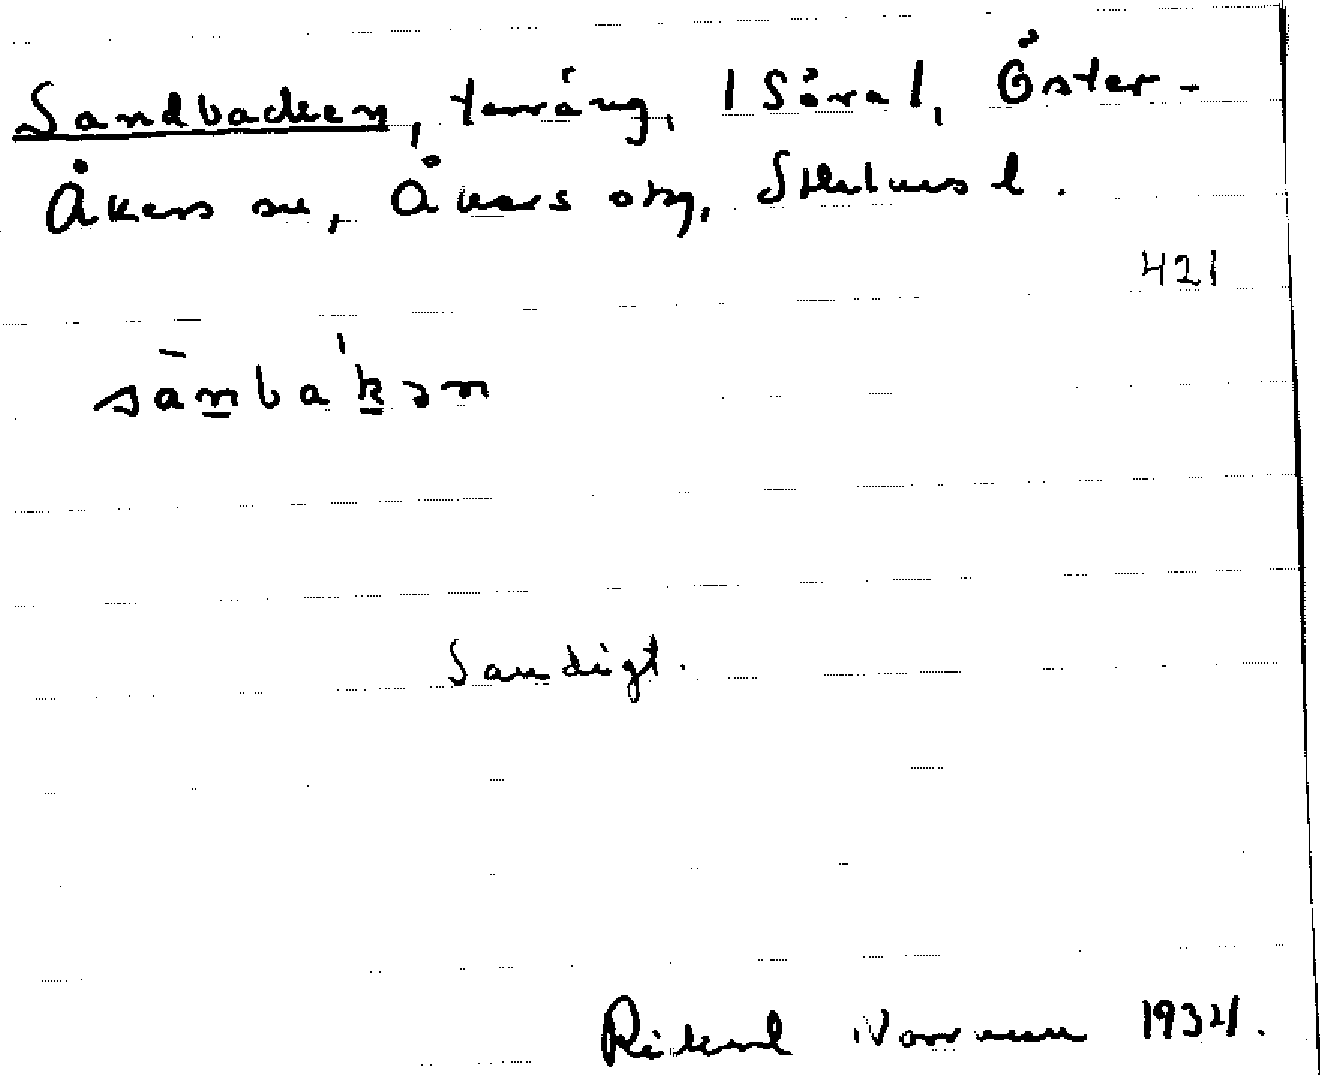 Sandbacken, terräng, /Söra/, Öster-
Åkers sn, Åkers skg, Sthlms l.
421
sànbakən
Sandigt.
Rikard Norrman 1934.